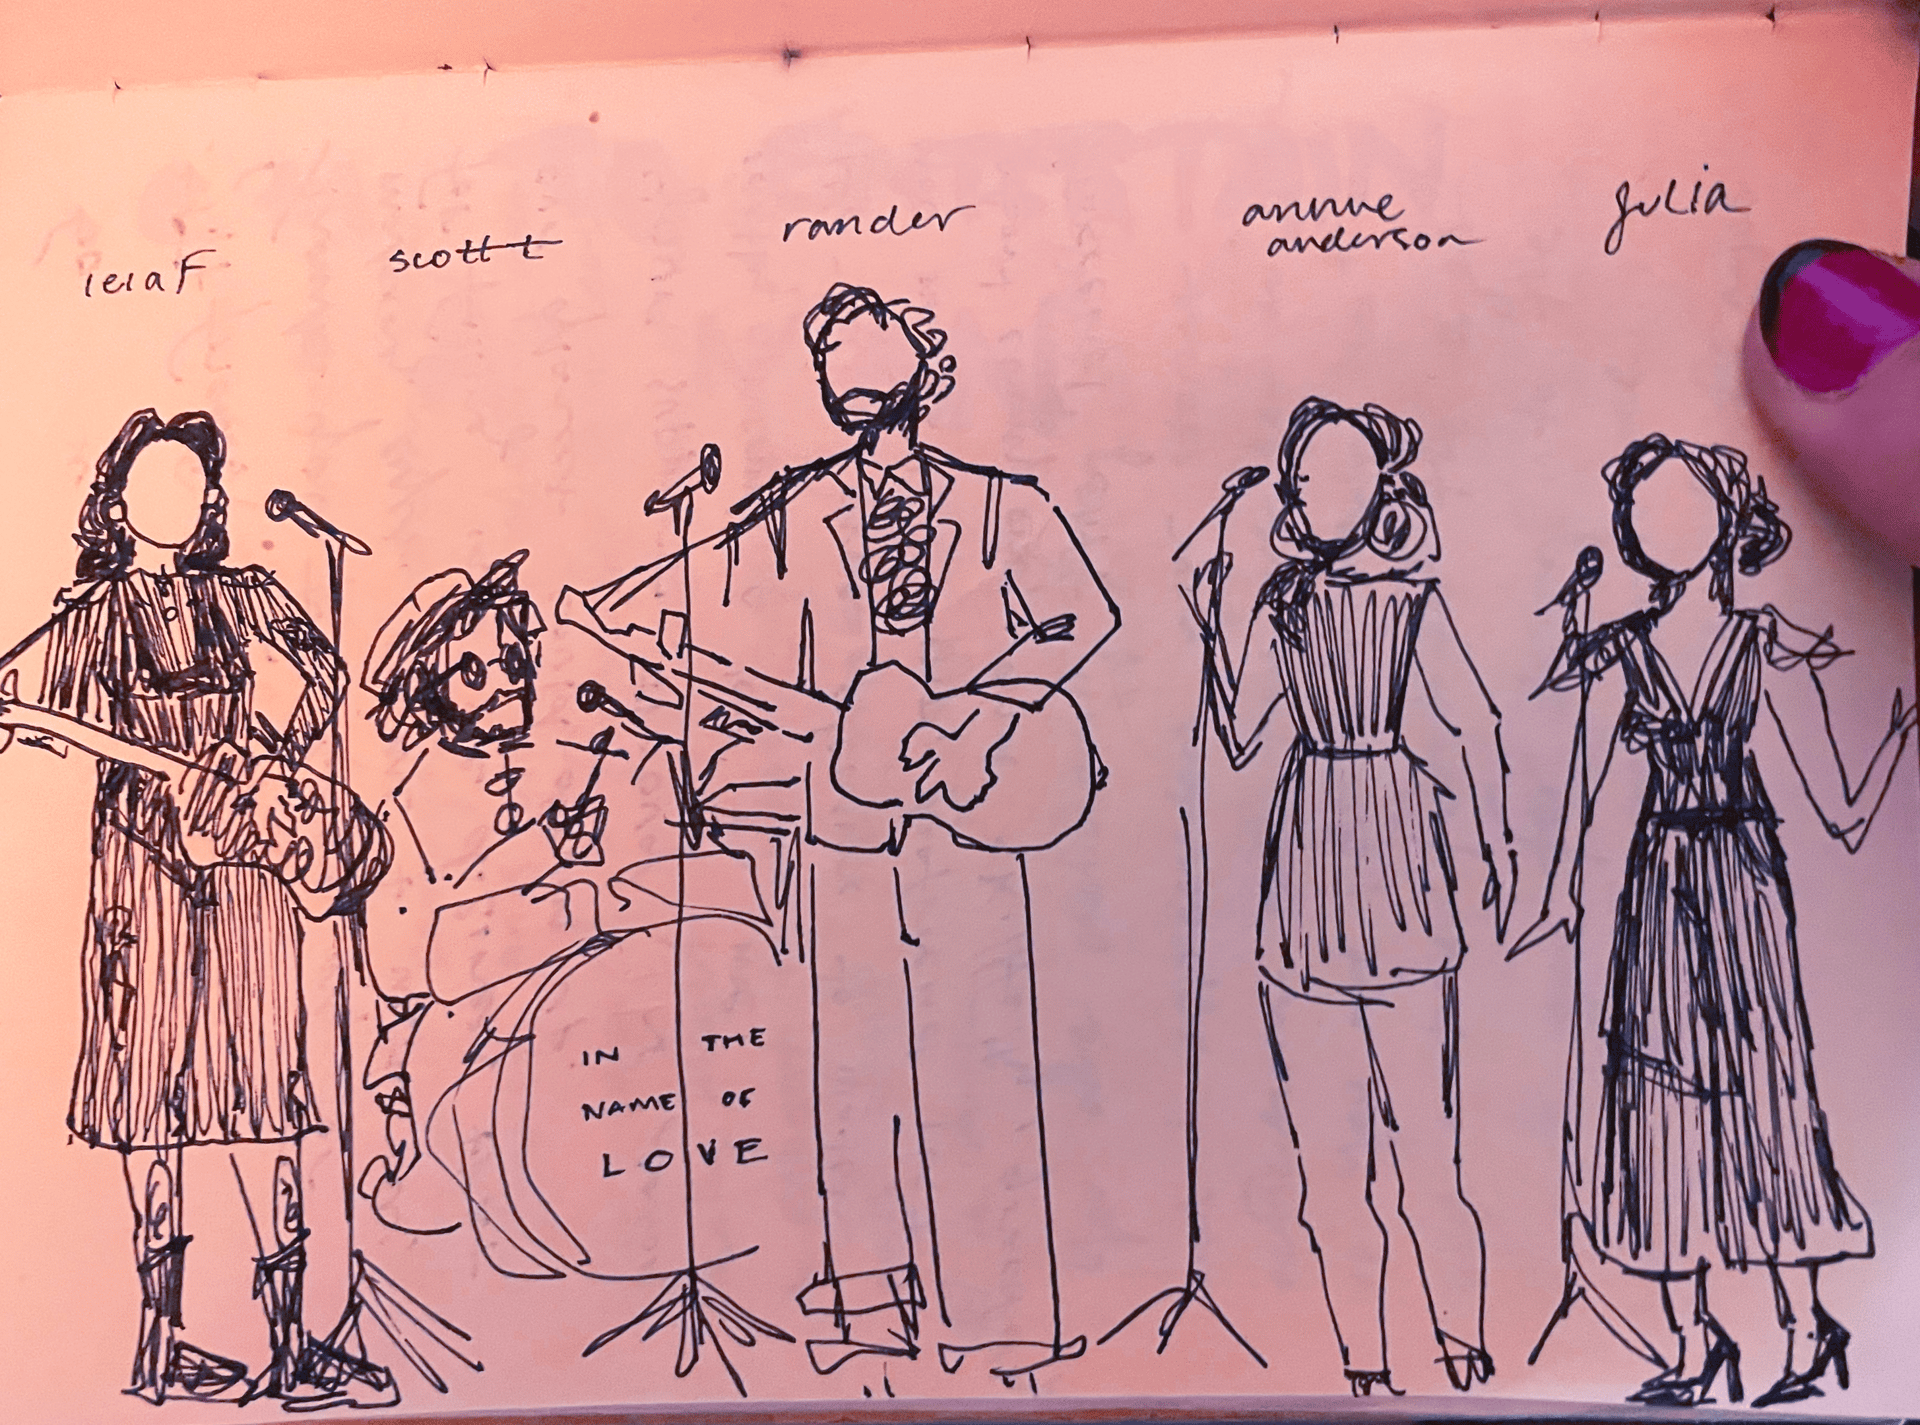 leiaf
scott t
rander
annue
anderson
julia
IN THE
NAME OF
LOVE